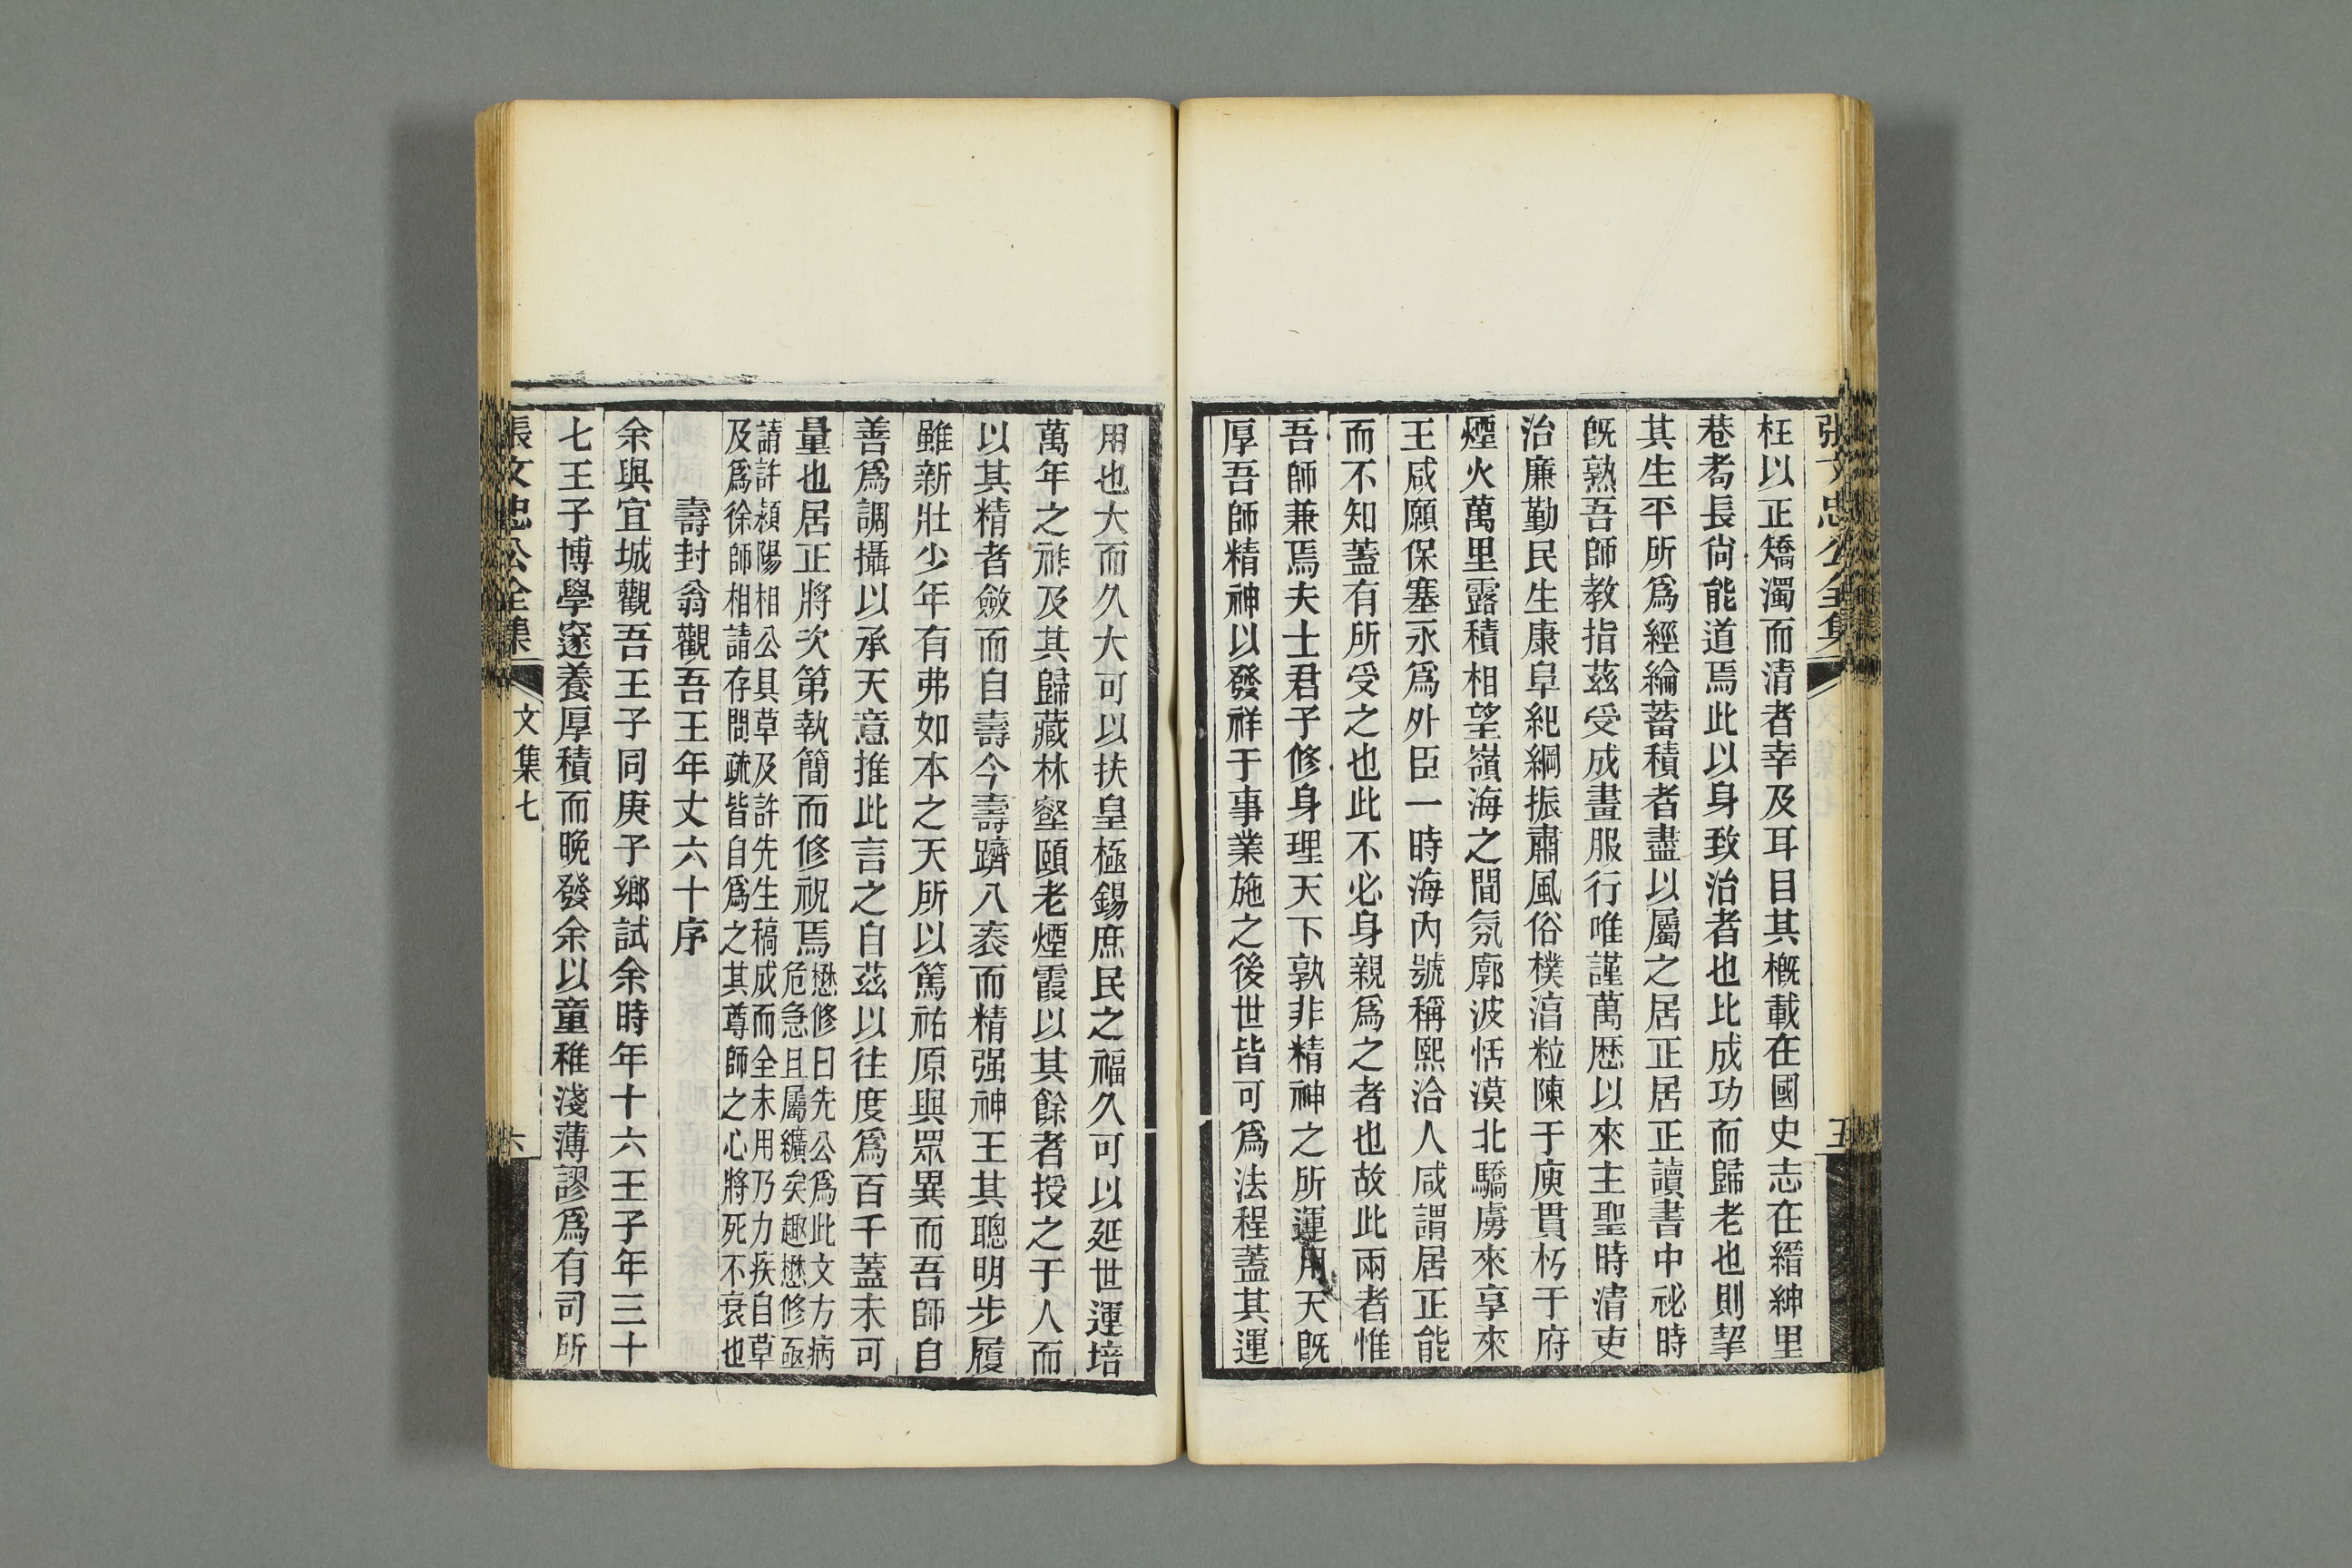 張文忠公全集
五
枉以正矯濁而清者幸及耳目其槪載在國史志在縉紳里
巷耇長尙能道焉此以身致治者也比成功而歸老也則挈
其生平所爲經綸蓄積者盡以屬之居正居正讀書中祕時
旣熟吾師敎指茲受成畫服行唯謹萬歷以來主聖時淸吏
治廉勤民生康阜紀綱振肅風俗樸湻粒陳于庾貫朽于府
煙火萬里露積相望嶺海之間氛廓波恬漠北驕虜來享來
王咸願保塞永爲外臣一時海內號稱熙洽人咸謂居正能
而不知蓋有所受之也此不必身親爲之者也故此兩者惟
吾師兼焉夫士君子修身理天下孰非精神之所運用天旣
厚吾師精神以發祥于事業施之後世皆可爲法程蓋其運
用也大而久大可以扶皇極錫庶民之福久可以延世運培
萬年之祚及其歸藏林壑頤老煙霞以其餘者授之于人而
以其精者斂而自壽今壽躋八袠而精强神王其聰明步履
雖新壯少年有弗如本之天所以篤祐原與眾異而吾師自
善爲調攝以承天意推此言之自茲以往度爲百千蓋未可
量也居正將次第執簡而修祝焉
懋修曰先公爲此文方病
危急且屬纊矣趣懋修亟
請許潁陽相公具草及許先生稿成而全未用乃力疾自草
及爲徐師相請存問疏皆自爲之其尊師之心將死不衰也
壽封翁觀吾王年丈六十序
余與宜城觀吾王子同庚子鄕試余時年十六王子年三十
七王子博學邃養厚積而晚發余以童稚淺薄謬爲有司所
張文忠公全集
文集七
六